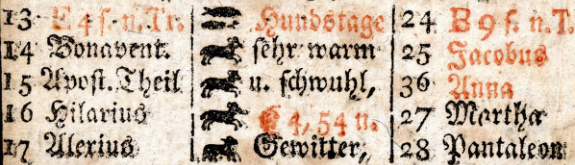 13 E 4 s. n. Tr. Hundstage 24 B 9 s. n. T.
14 Bonavent. sehr warm 25 Jacobus
15 Apost. Theil u. schwuhl, 36 Anna
16 Hilarius 4, 54 n. 27 Martha
17 Alexius Gewitter, 28 Pantaleon